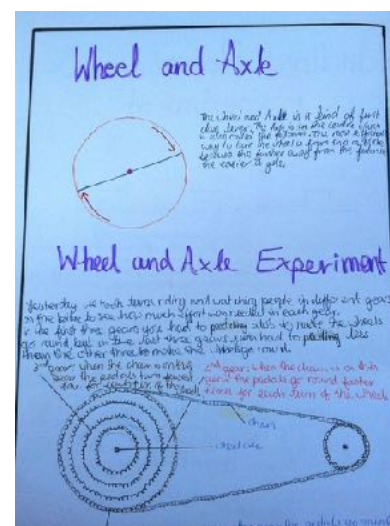 Wheel and Axle
The wheel and Axle is a kind of first
class lever. The Axle is in the centre which
is also called the fulcrum. The most efficient
way to turn the wheel is from the outside
because the further away from the fulcrum
the easier it gets.
Wheel and Axle Experiment
Yesterday we took turns riding and watching people in different gears
on the bike to see how much effort was needed in each gear.
In the first three gears you had to to make the wheels
go round but in the last three gears you had to less
than the other three to make the wheels go round.
gear: when the chain is on this
gear the pedals turn
for each turn of the wheel
2nd gear: when the chain is on this
gear the pedals go round faster
for each turn of the wheel
chain